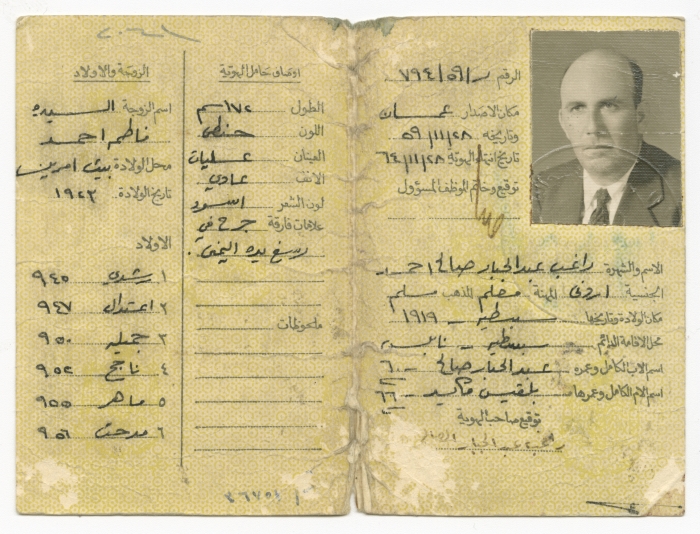 الرقم ر/٥٩/٧٩٤
مكان الاصدار عمان
وتاريخه ٥٩/١١/٢٨
تاريخ انتهاء الهوية ٦٤/١١/٢٨
توقيع وخاتم الموظف المسؤول
الاسم والشهرة راغب عبد الجبار صالح احمد
الجنسية اردني المهنة معلم المذهب مسلم
مكان الولادة وتاريخها سبسطيه - ١٩١٩
محل الاقامة الدائم سبسطيه - نابلس
اسم الاب الكامل وعمره عبد الجبار صالح - ٦٠
اسم الام الكامل وعمرها بلقيس - ٦٦
توقيع صاحب الهوية
راغب عبد الجبار
اوصاف حامل الهوية
الطول ١٧٢ سم
اللون حنطي
العينان عسليات
الانف عادي
لون الشعر اسود
علامات فارقة جرح في
رسغ يده اليمنى.
ملحوظات
الزوجة والاولاد
اسم الزوجة السيده
فاطمه احمد
محل الولادة بيت امرين
تاريخ الولادة ١٩٢٣
الاولاد
١ رشدي ٩٤٥
٢ اعتدال ٩٤٧
٣ جميله ٩٥٠
٤ ناجح ٩٥٢
٥ ماهر ٩٥٥
٦ مدحت ٩٥٦